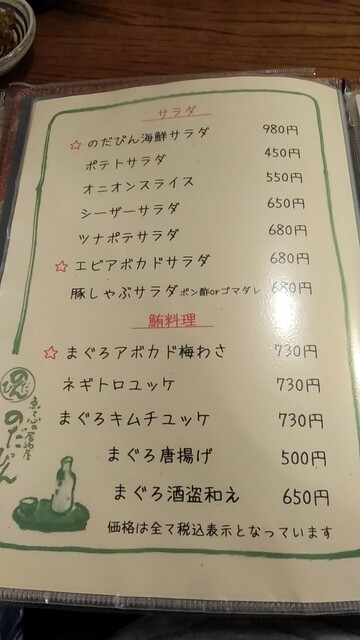 サラダ
☆ のだぴん海鮮サラダ 980円
ポテトサラダ 450円
オニオンスライス 550円
シーザーサラダ 650円
ツナポテサラダ 680円
☆ エビアボカドサラダ 680円
豚しゃぶサラダポン酢orゴマダレ 680円
鮪料理
☆ まぐろアボカド梅わさ 730円
ネギトロユッケ 730円
まぐろキムチユッケ 730円
まぐろ唐揚げ 500円
まぐろ酒盗和え 650円
価格は全て税込表示となっています
のだぴん